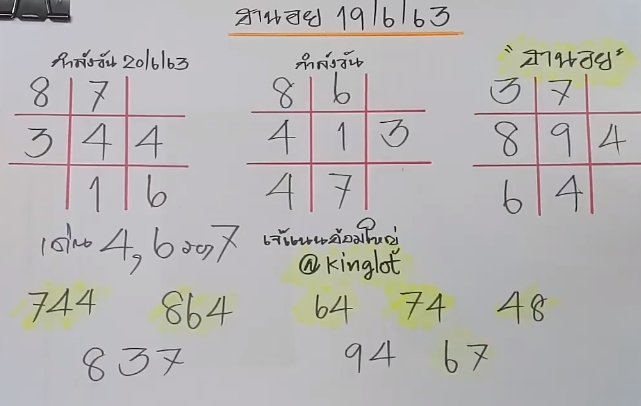 ฮานอย 19/6/63
กำลังวัน 20/6/63
8 7
3 4 4
1 6
กำลังวัน
8 6
4 1 3
4 7
"ฮานอย"
3 7
8 9 4
6 4
เด่น 4, 6 รอง 7
เจ๊แนนอ้อมใหญ่
@kinglot
744 864
837
64 74 48
94 67